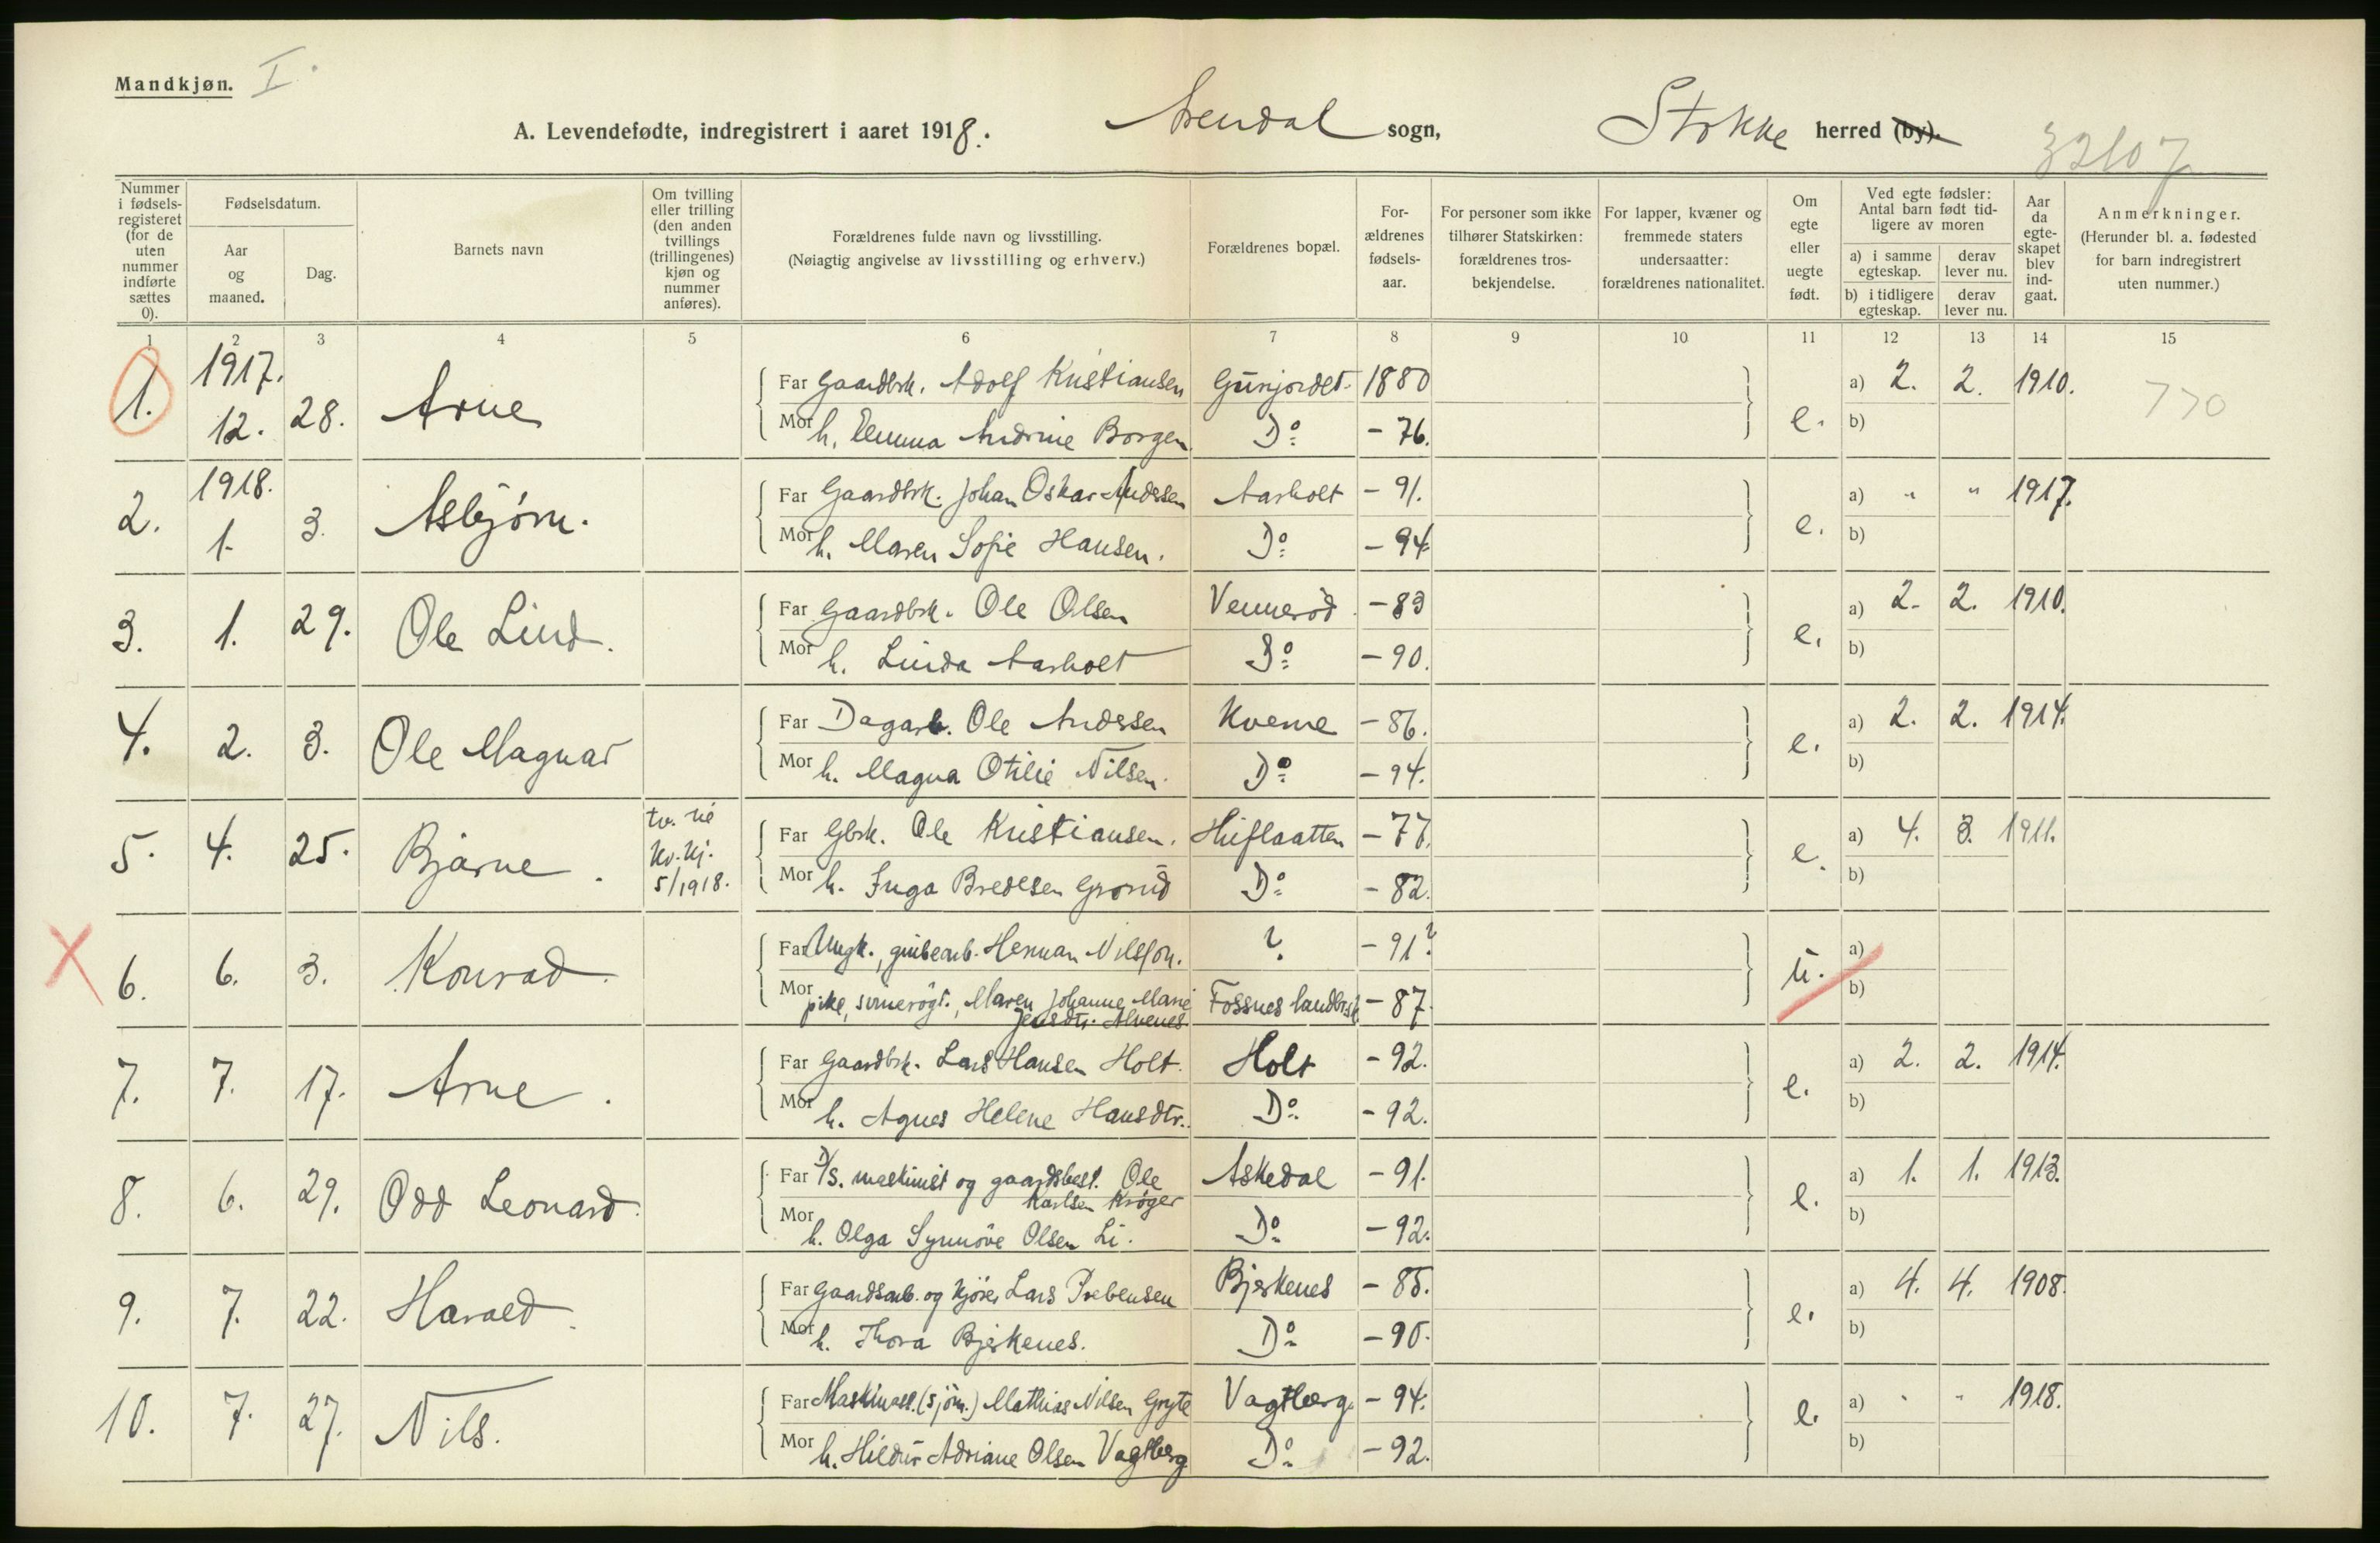 Mandkjøn. I.
A. Levendefødte, indregistrert i aaret 1918. Arendal sogn, Stokke herred (by).
32107
Nummer i fødselsregisteret (for de uten nummer indførte sættes 0).
Fødselsdatum.
Aar og maaned.
Dag.
Barnets navn
Om tvilling eller trilling (den anden tvillings (trillingenes) kjøn og nummer anføres).
Forældrenes fulde navn og livsstilling.
(Nøiagtig angivelse av livsstilling og erhverv.)
Forældrenes bopæl.
Forældrenes fødselsaar.
For personer som ikke tilhører Statskirken: forældrenes trosbekjendelse.
For lapper, kvæner og fremmede staters undersaatter: forældrenes nationalitet.
Om egte eller uegte født.
Ved egte fødsler: Antal barn født tidligere av moren
a) i samme egteskap. derav lever nu.
b) i tidligere egteskap. derav lever nu.
Aar da egteskapet blev indgaat.
Anmerkninger.
(Herunder bl. a. fødested for barn indregistrert uten nummer.)
1 2 3 4 5 6 7 8 9 10 11 12 13 14 15
1. 1917. 12. 28. Arne
Far Gaardbrk. Adolf Kristiansen Gunjordet 1880 e. a) 2. 2. 1910. 770
Mor h. Emma Andrine Borgen Do - 76. b)
2. 1918. 1. 3. Asbjørn.
Far Gaardbrk. Johan Oskar Anderssen Aasholt - 91. e. a) " " 1917.
Mor h. Maren Sofie Hansen. Do - 94 b)
3. 1. 29. Ole Lind.
Far Gaardbrk. Ole Olsen Vennerød - 83 e. a) 2. 2. 1910.
Mor h. Linda Aasholt Do - 90. b)
4. 2. 3. Ole Magnar
Far Dagarb. Ole Anderssen Kverne - 86. e. a) 2. 2. 1914.
Mor h. Magna Otilie Nilsen. Do - 94. b)
5. 4. 25. Bjarne. tv. kv.kj. 5/1918.
Far Gbrk. Ole Kristiansen. - 77. e. a) 4. 3. 1911.
Mor h. Inga Bredesen Grorud Do - 82. b)
6. 6. 3. Konrad.
Far Ungk., grubearb. Herman Nilsson. ? - 91? u. a)
Mor pike, Maren Johanne Marie Jensdtr. Alvenes. Fossnes landbrsk. - 87. b)
7. 7. 17. Arne.
Far Gaardbrk. Lars Hansen Holt. Holt - 92. e. a) 2. 2. 1914.
Mor h. Agnes Helene Hansdtr. Do - 92. b)
8. 6. 29. Odd Leonard.
Far D/S. maskinist og gaardsbest. Ole Karlsen Krøger Askedal - 91. e. a) 1. 1. 1913.
Mor h. Olga Synnöve Olsen Li. Do - 92. b)
9. 7. 22. Harald.
Far Gaardsarb. og kjører Lars Prebensen Bjerkenes - 85. e. a) 4. 4. 1908.
Mor h. Thora Bjerkenes. Do - 90. b)
10. 7. 27. Nils.
Far Maskinass. (sjöm.) Mathias Nilsen Gryte Vagtberg - 94. e. a) " " 1918.
Mor h. Hildur Adriane Olsen Vagtberg Do - 92. b)